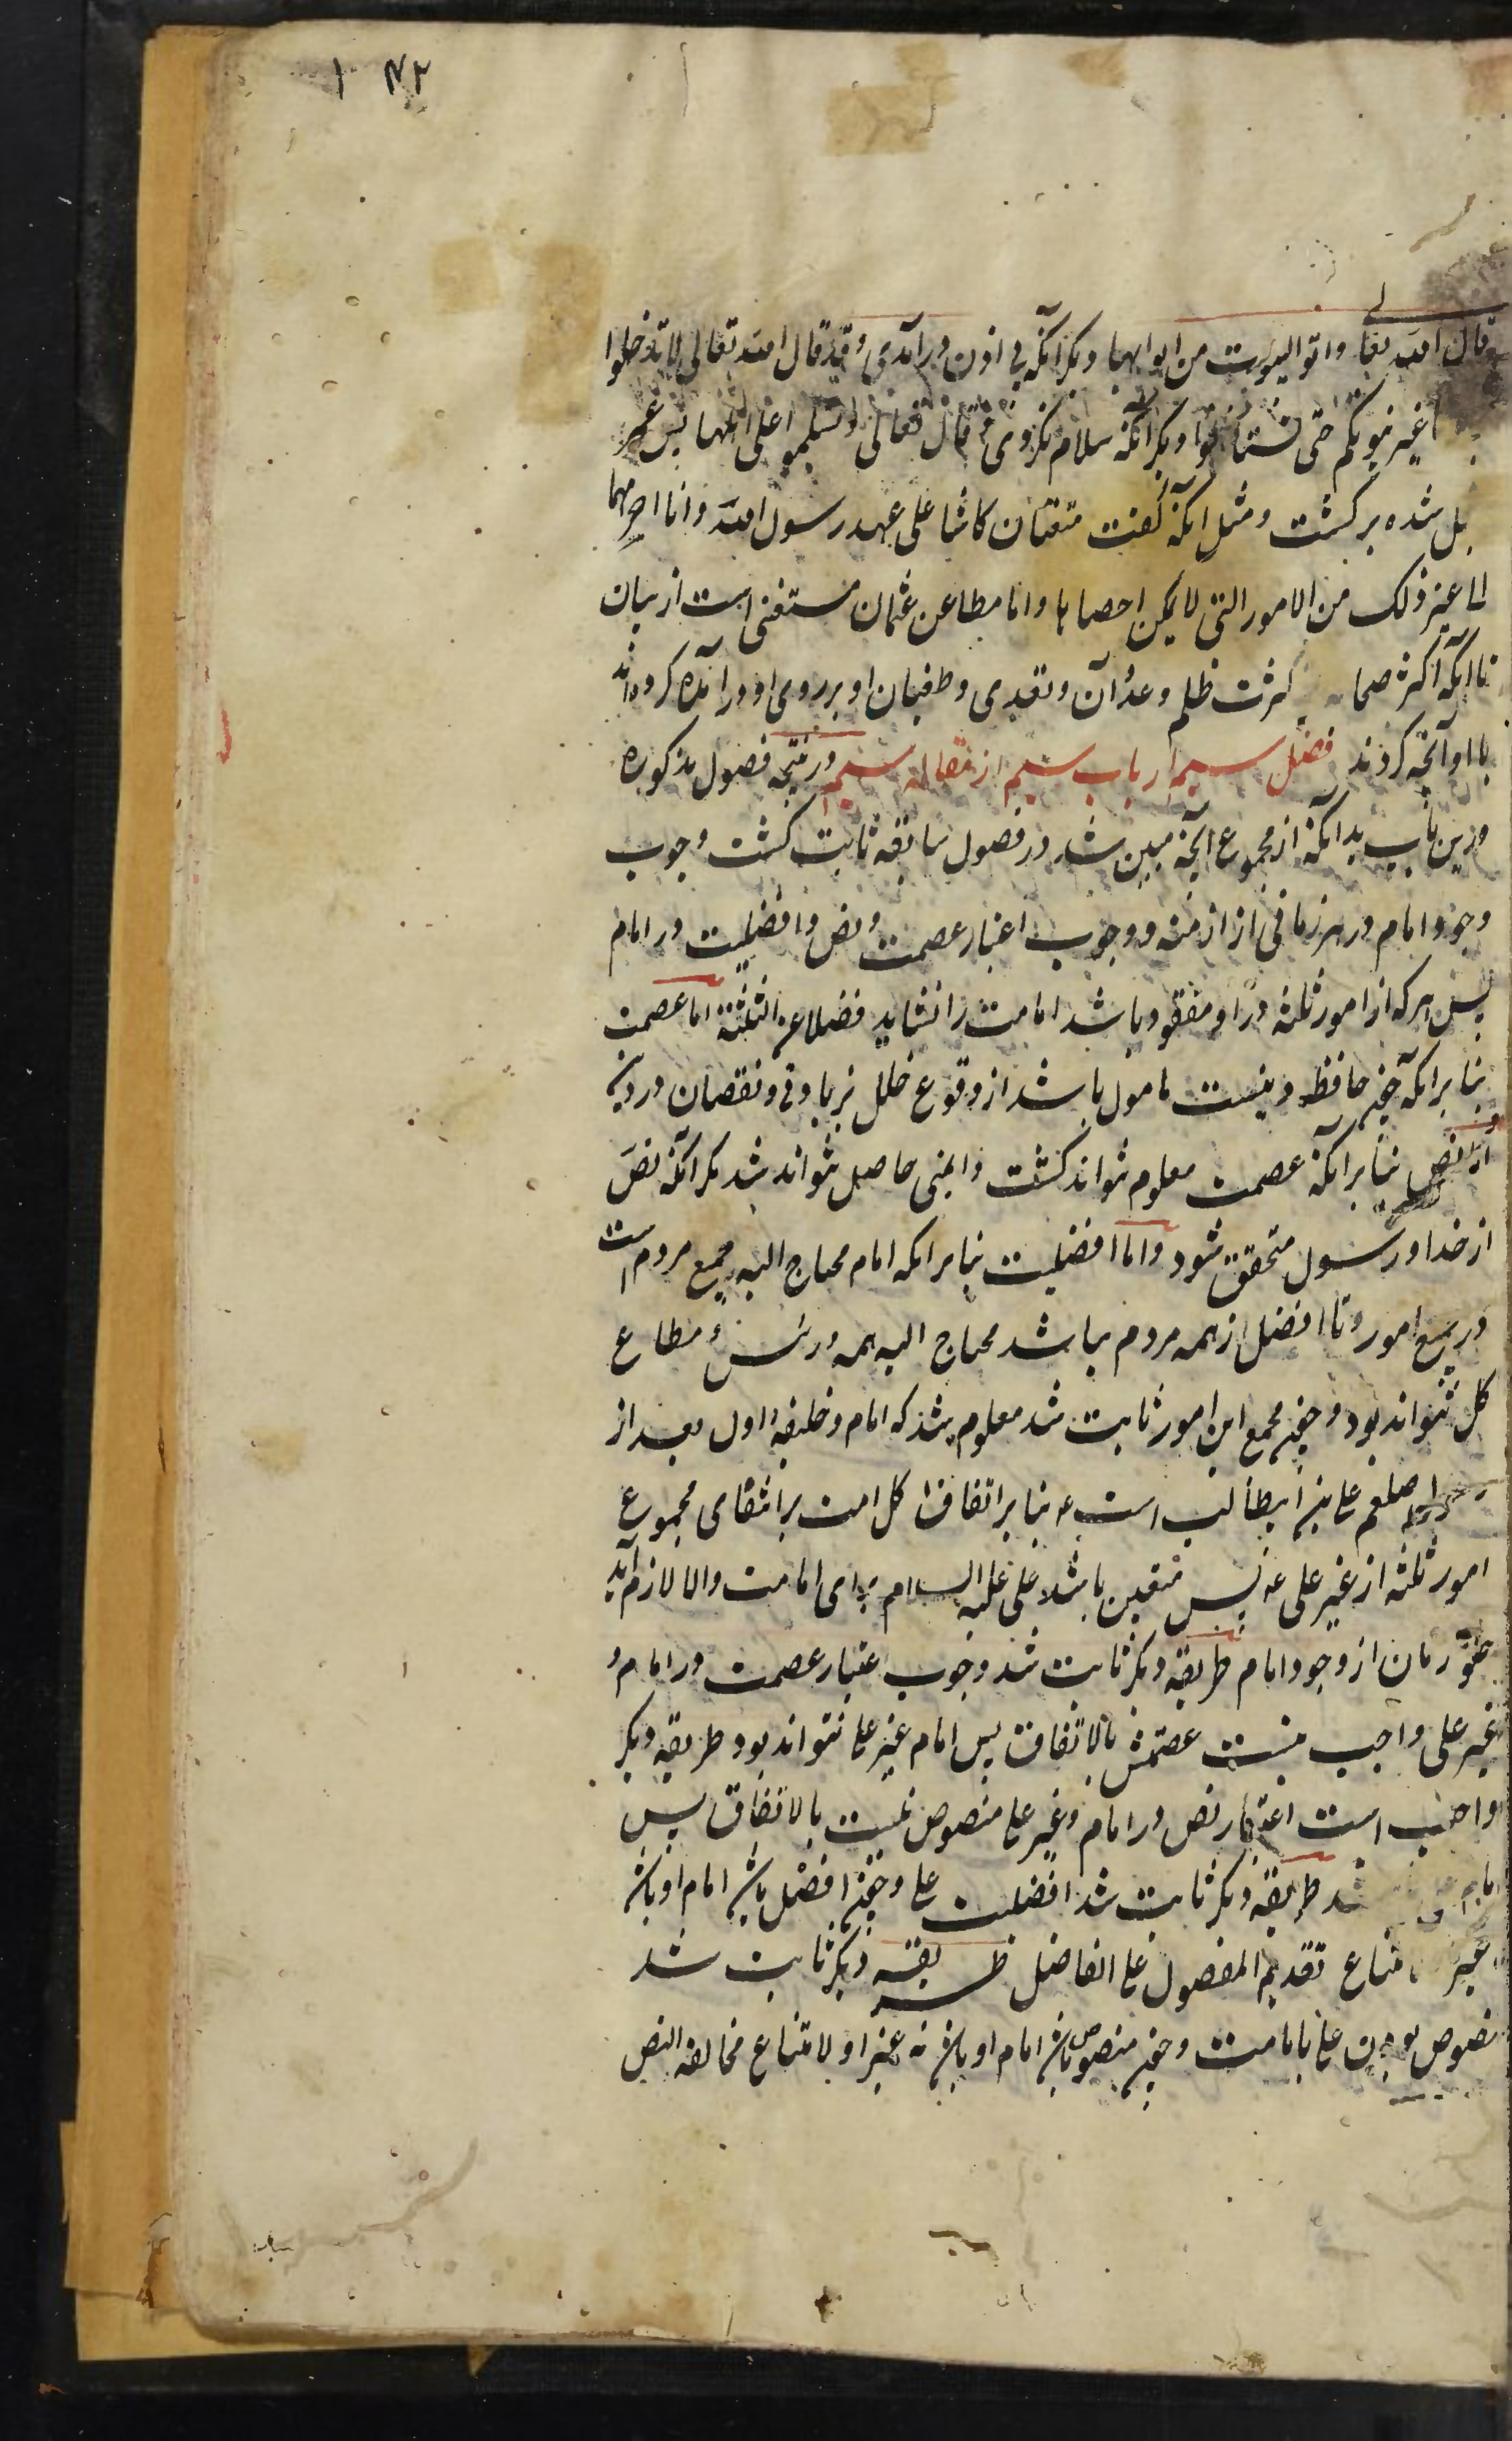 ۱۴۲
وقال الله تعالی واتوا البیوت من ابوابها دیگر آنکه بی اذن درآمدی و قد قال الله تعالی لا تدخلوا
غیر بیوتکم حتی تستأنسوا و دیگر آنکه سلام نکردی و قال تعالی وتسلموا علی اهلها پس عمر
شده برگشت و مثل آنکه گفت متعتان کانتا علی عهد رسول الله وانا احرمهما
الی غیر ذلک من الامور التی لا یمکن احصاها واما مطاعن عثمان مستغنی است از بیان
تا آنکه اکثر صحابه کثرت ظلم و عدوان و تعدی و طغیان او بر روی او درآمده کردند
با او آنچه کردند فصل سیم از باب سیم از مقاله سیم در نتیجه فصول مذکوره
درین باب بدانکه از مجموع آنچه مبین شد در فصول سابقه ثابت گشت وجوب
وجود امام در هر زمانی از ازمنه و وجوب اعتبار عصمت و نص و افضلیت در امام
پس هر که از امور ثلثه در او مفقود باشد امامت را نشاید فضلا عن الثلثة اما عصمت
بنابر آنکه چون حافظ دینست مامول باشد از وقوع خلل بزیادتی و نقصان در دین
و اما نص بنابر آنکه عصمت معلوم نتواند گشت و ایمنی حاصل نتواند شد مگر آنکه نص
از خدا و رسول متحقق شود و اما افضلیت بنابر آنکه امام محتاج الیه جمیع مردم است
در جمیع امور و تا افضل از همه مردم نباشد محتاج الیه همه و رئیس و مطاع
کل نتواند بود و چون مجموع این امور ثابت شد معلوم شد که امام و خلیفه اول بعد از
رسول صلعم علی بن ابیطالب است ع بنابر اتفاق کل امت بر انتفای مجموع
امور ثلثه از غیر علی ع پس متعین باشد علی علیه السلام برای امامت والا لازم آید
خلو زمان از وجود امام طریقه دیگر ثابت شد وجوب اعتبار عصمت در امام و
غیر علی واجب نیست عصمتش بالاتفاق پس امام غیر علی نتواند بود طریقه دیگر
واجب است اعتبار نص در امام و غیر علی منصوص نیست بالاتفاق پس
شد طریقه دیگر ثابت شد افضلیت علی و چون افضل باشد امام او باشد
غیر امتناع تقدیم المفضول علی الفاضل طریقه دیگر ثابت شد
منصوص بودن علی بامامت و چون منصوص باشد امام او باشد نه غیر او لامتناع مخالفه النص